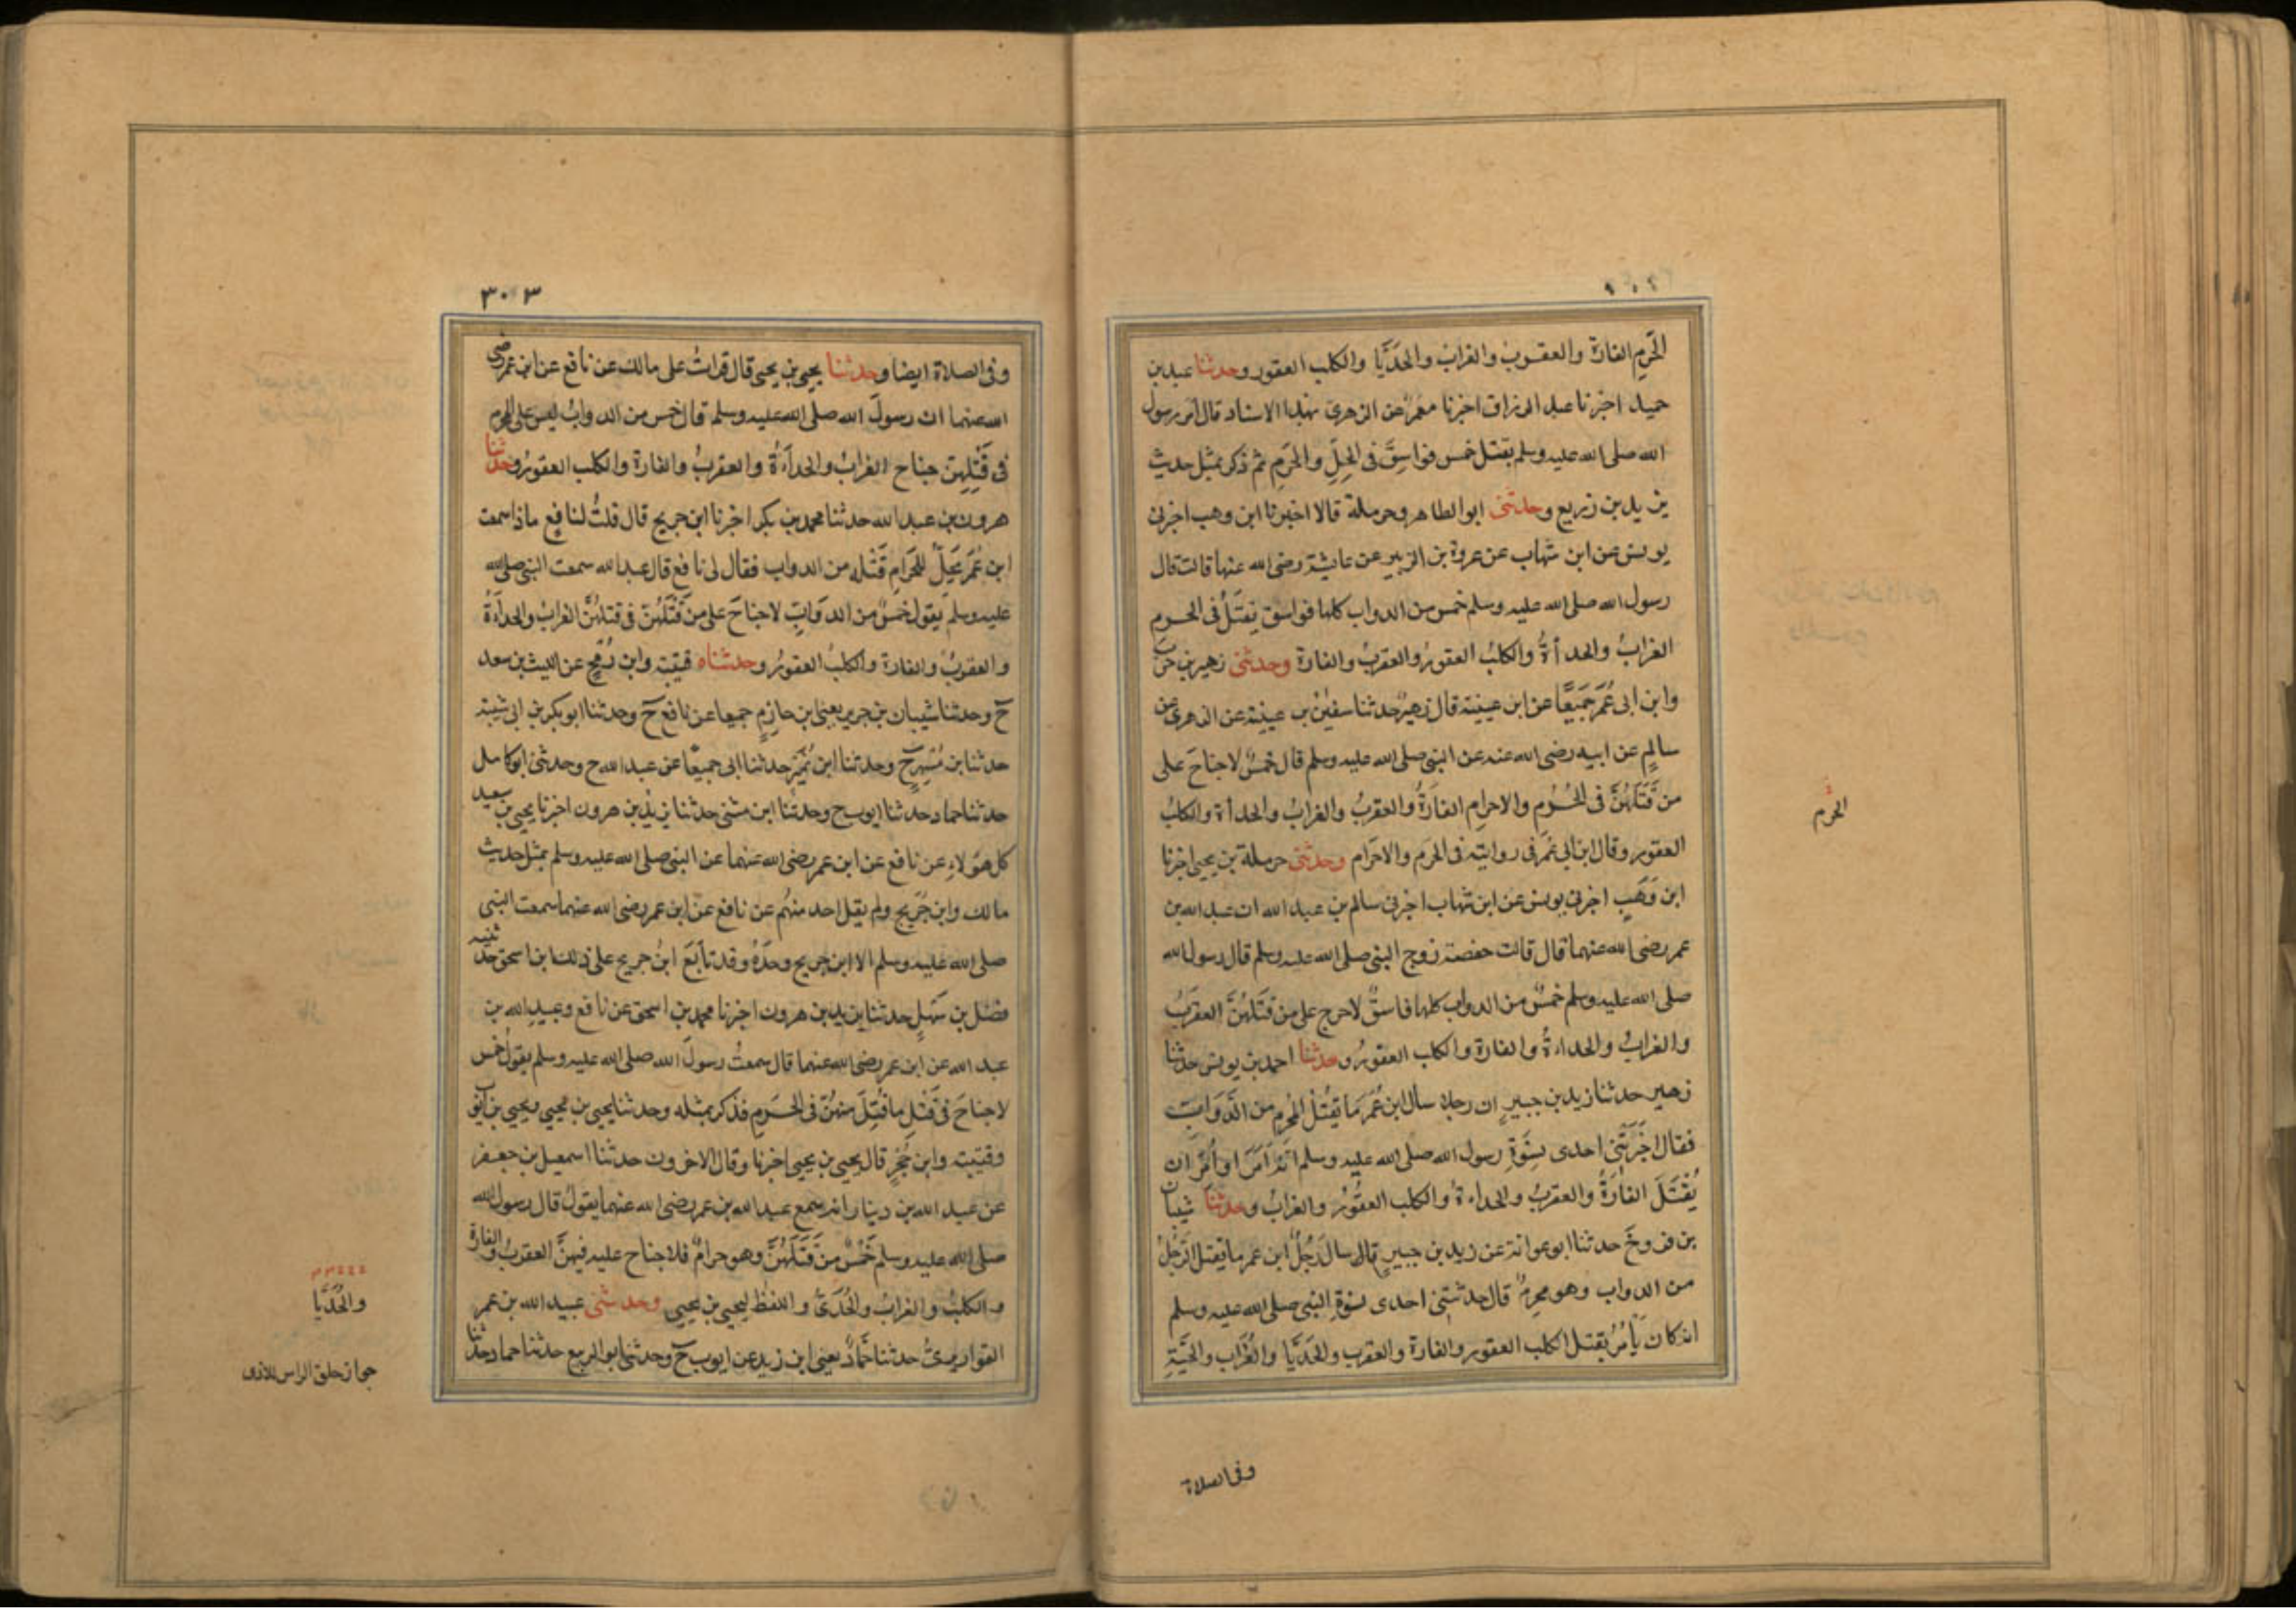 الحَرم الفارة والعقرب والغراب والحُدَيّا والكلب العقور وحدثنا عبد بن
حميد اخبرنا عبد الرزاق اخبرنا معمر عن الزهرى بهذا الاسناد قال امر رسول
الله صلى الله عليه وسلم بقتل خمس فواسق فى الحِلّ والحَرَم ثم ذكر بمثل حديث
يزيد بن زريع وحدثنى ابو الطاهر وحرملة قالا اخبرنا ابن وهب اخبرنى
يونس عن ابن شهاب عن عروة بن الزبير عن عايشة رضى الله عنها قالت قال
رسول الله صلى الله عليه وسلم خمس من الدواب كلها فواسق تُقتَلُ فى الحرم
الغرابُ والحدأةُ والكلبُ العقورُ والعقربُ والفارة وحدثنى زهير بن حرب
وابن ابى عُمَرَ جَمِيعًا عن ابن عيينة قال زهيرٌ حدثنا سفين بن عيينة عن الزهرى عن
سالمٍ عن ابيه رضى الله عنه عن النبى صلى الله عليه وسلم قال خمسٌ لاجناحَ على
من قَتَلَهُنَّ فى الحُرُمِ والاحرامِ الفَارَةُ والعقربُ والغرابُ والحدأة والكلبُ
العقور وقال ابن ابى عُمَرَ فى روايته فى الحرم والاحرام وحدثنى حرملة بن يحيى اخبرنا
ابن وَهَبٍ اخبرنى يونس عن ابن شهاب اخبرنى سالم بن عبد الله ان عبد الله بن
عمر رضى الله عنهما قال قالت حفصة زوج النبى صلى الله عليه وسلم قال رسول الله
صلى الله عليه وسلم خمسٌ من الدواب كلها فاسقٌ لاحرج على من قَتَلَهُنَّ العقربُ
والغرابُ والحداءةُ والفارة والكلب العقورُ وحدثنا احمد بن يونس حدثنا
زهير حدثنا زيد بن جبيرٍ ان رجلا سال ابن عُمَرَ مَا يَقتُلُ المُحرِم من الدَّوَابّ
فقال اخبَرَتْنِى احدى نِسْوَةِ رسول الله صلى الله عليه وسلم انه اَمَرَ او اُمِرَ ان
يُقْتَلَ الفارَةُ والعقربُ والحداءةُ والكلب العقُورُ والغرابُ وحدثنا شيبان
بن فروخَ حدثنا ابوعوانة عن زيد بن جبيرٍ قال سالَ رَجُلٌ ابن عمر ما يقتل الرَّجُلُ
من الدواب وهو محرِمٌ قال حدثتنى احدى نسْوَةِ النبى صلى الله عليه وسلم
انه كان يَأمُرُ بقتل الكلب العقور والفارة والعقرب والحُدَيَّا والغُرَاب والحَيَّةِ
الحرم
وفى الصلاة
٣٠٣
وفى الصلاة ايضا وحدثنا يحيى بن يحيى قال قراتُ على مالك عن نافع عن ابن عمر رضى
الله عنهما ان رسولَ الله صلى الله عليه وسلم قال خمس من الدوابّ ليس على المحرم
فى قَتْلِهِنّ جناح الغرابُ والحدأةُ والعقربُ والفارة والكلب العقورُ وحدثنا
هرون بن عبد الله حدثنا محمد بن بكر اخبرنا ابن جريج قال قلتُ لنافعٍ ماذا سمعت
ابن عُمَرَ يُحِلُّ للحَرَامِ قَتْلَه من الدواب فقال لى نافع قال عبد الله سمعت النبى صلى الله
عليه وسلم يقول خمسٌ من الدوَابّ لاجناحَ على من قَتَلَهُنّ فى قتلِهُنَّ الغرابُ والحداَةُ
والعقربُ والفارة والكلبُ العقورُ وحدثناه قتيبة وابن رُمْحٍ عن الليث بن سعد
ح وحدثنا شيبان بن جرير يعنى ابن حازمٍ جميعا عن نافع ح وحدثنا ابو بكر بن ابى شيبة
حدثنا ابن مُسْهِرٍ ح وحدثنا ابن نُمَيْرٍ حدثنا ابى جميعًا عن عبد الله ح وحدثنى ابو كامل
حدثنا حماد حدثنا ايوب ح وحدثنا ابن مثنى حدثنا يزيد بن هرون اخبرنا يحيى بن سعيد
كل هؤلاءِ عن نافع عن ابن عمر رضى الله عنهما عن النبى صلى الله عليه وسلم بمثل حديث
مالك وابن جُرَيج ولم يقل احد منهُم عن نافع عن ابن عمر رضى الله عنهما سمعت النبى
صلى الله عليه وسلم الا ابن جريج وحدَهُ وقد تابَعَ ابنُ جريج على ذلك ابنُ اسحق حدثنيه
فضل بن سَهلٍ حدثنا يزيد بن هرون اخبرنا محمد بن اسحق عن نافع وعبيد الله بن
عبد الله عن ابن عمر رضى الله عنهما قال سمعتُ رسولَ الله صلى الله عليه وسلم يقول خمس
لاجناحَ فى قَتْلِ ما قُتِلَ منهنّ فى الحَرَمِ فذكر بمثله وحدثنا يحيى بن يحيى ويحيى بن ايوب
وقتيبة وابن حُجرٍ قال يحيى بن يحيى اخبرنا وقال الاخرون حدثنا اسمعيل بن جعفر
عن عبد الله بن دينار انه سمع عبد الله بن عمر رضى الله عنهما يقولُ قال رسول الله
صلى الله عليه وسلم خَمْسٌ من قَتَلَهُنَّ وهو حرامٌ فلاجناح عليه فيهنَّ العقربُ والفارة
والكلبُ والغرابُ والحُدَىّ واللفظ ليحيى بن يحيى وحدثنى عبيد الله بن عمر
القواريرىّ حدثنا حَمَّادٌ يعنى ابن زيد عن ايوب ح وحدثنى ابو الربيع حدثنا حماد حدثنا
والحُدَيَّا
جواز حلق الراس للاذى